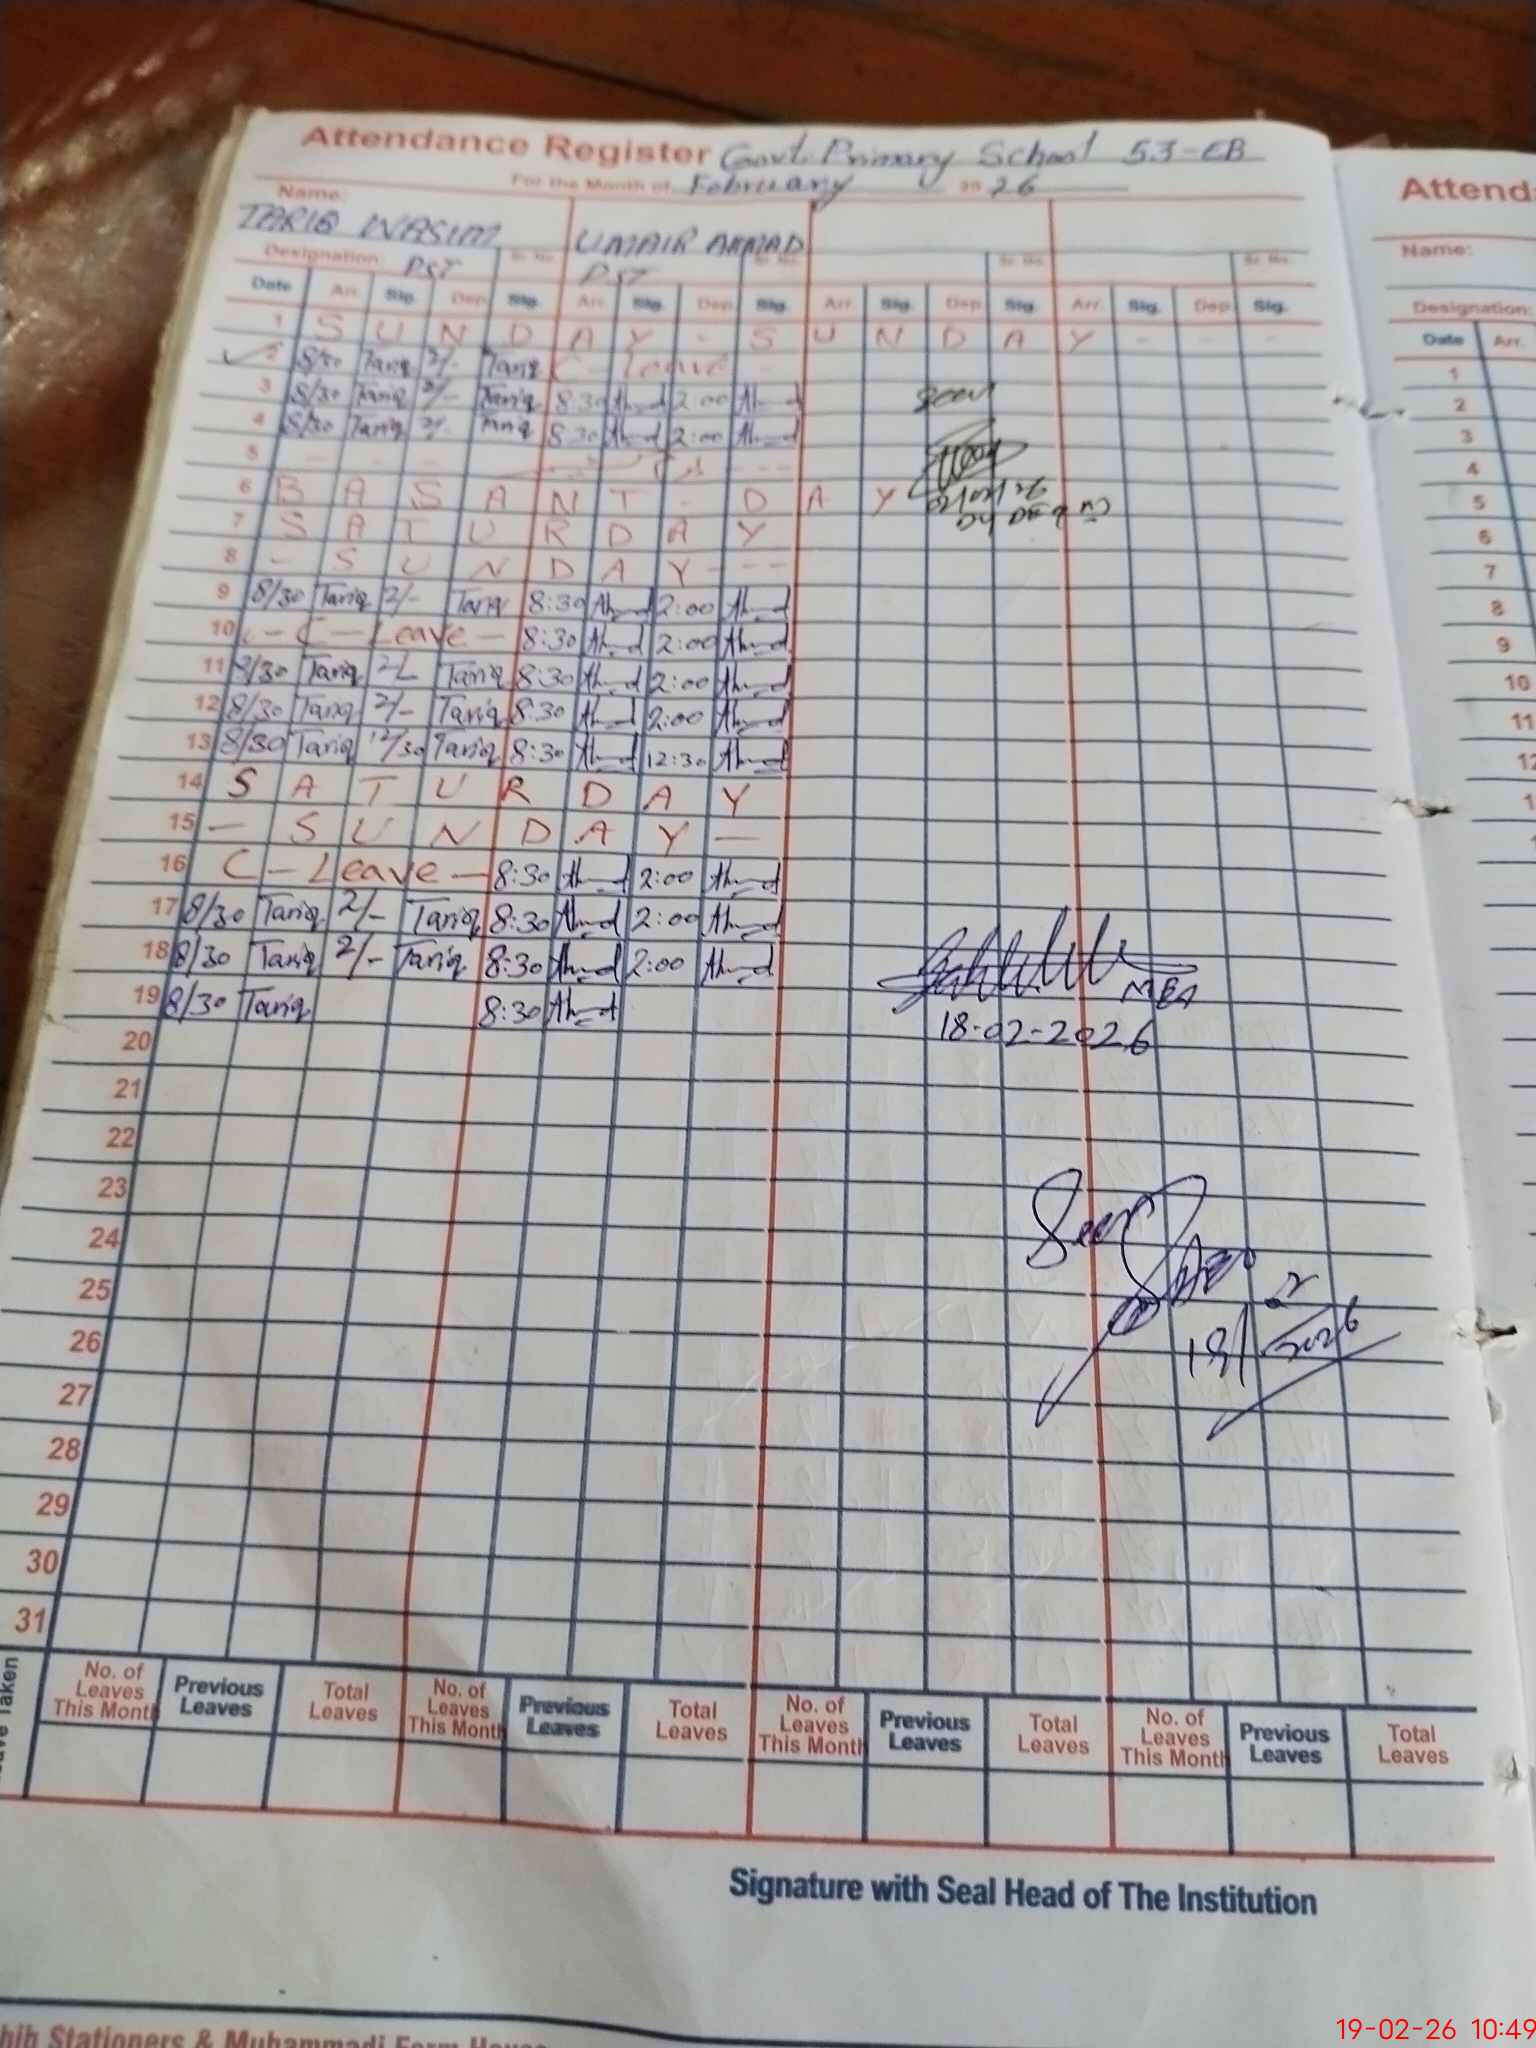 Attendance Register Govt. Primary School 53-EB
For the Month of February 20 26
Name:
TARIQ WASIM UMAIR AHMAD
Designation: PST Sr. No. PST Sr. No. Sr. No. Sr. No.
Date Arr. Sig. Dep. Sig. Arr. Sig. Dep. Sig. Arr. Sig. Dep. Sig. Arr. Sig. Dep. Sig.
1 S U N D A Y - S U N D A Y - - -
2 8/30 Tariq 2/- Tariq C - Leave -
3 8/30 Tariq 2/- Tariq 8:30 Ahmad 2:00 Ahmad Seen
4 8/30 Tariq 2/- Tariq 8:30 Ahmad 2:00 Ahmad
5
6 B A S A N T - D A Y
7 S A T U R D A Y
8 - S U N D A Y - - -
9 8/30 Tariq 2/- Tariq 8:30 Ahmad 2:00 Ahmad
10 - C - Leave - 8:30 Ahmad 2:00 Ahmad
11 8/30 Tariq 2/- Tariq 8:30 Ahmad 2:00 Ahmad
12 8/30 Tariq 2/- Tariq 8:30 Ahmad 2:00 Ahmad
13 8/30 Tariq 12/30 Tariq 8:30 Ahmad 12:30 Ahmad
14 S A T U R D A Y
15 - S U N D A Y -
16 C - Leave - 8:30 Ahmad 2:00 Ahmad
17 8/30 Tariq 2/- Tariq 8:30 Ahmad 2:00 Ahmad
18 8/30 Tariq 2/- Tariq 8:30 Ahmad 2:00 Ahmad
MEA
19 8/30 Tariq 8:30 Ahmad
18-02-2026
20
21
22
23
24 Seen
25
26
27
28
29
30
31
No. of Leaves This Month Previous Leaves Total Leaves No. of Leaves This Month Previous Leaves Total Leaves No. of Leaves This Month Previous Leaves Total Leaves No. of Leaves This Month Previous Leaves Total Leaves
Signature with Seal Head of The Institution
Stationers & Muhammadi Form House
Attend
Name:
Designation:
Date Arr.
1
2
3
4
5
6
7
8
9
10
11
12
19-02-26 10:49